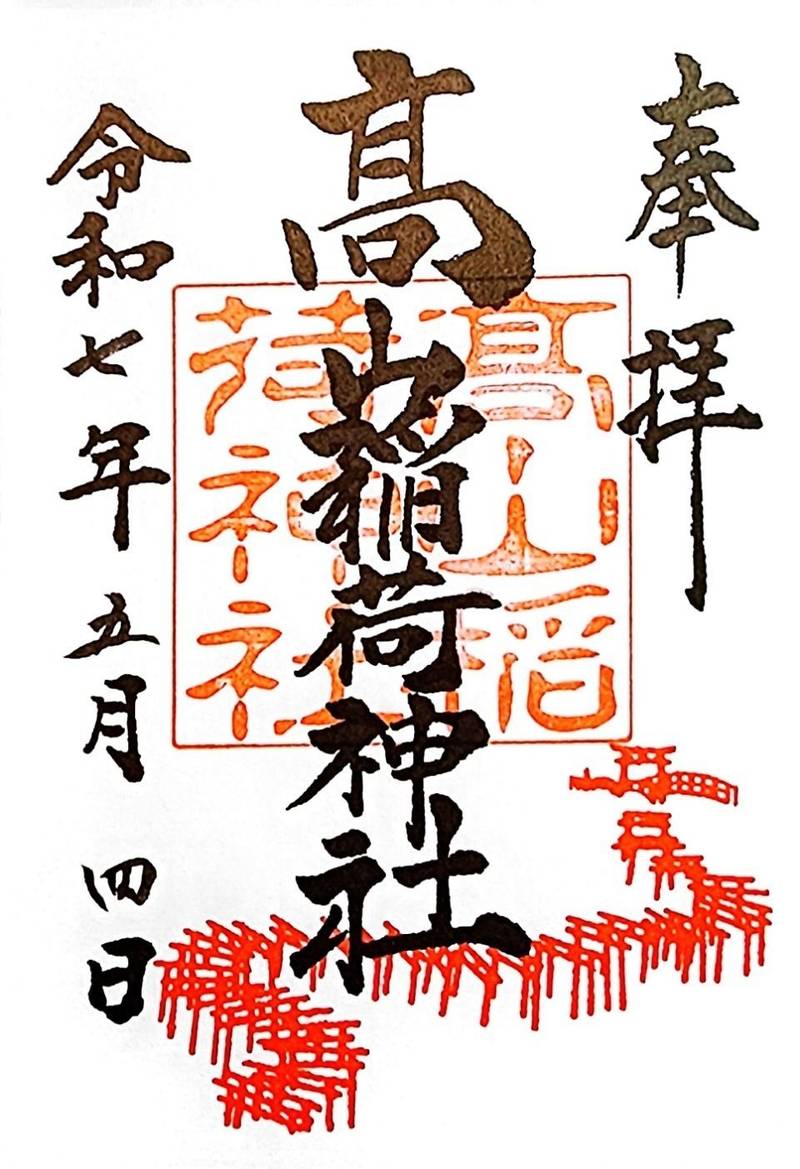 奉拝
髙山稲荷神社
髙山稲
荷神社
令和七年五月四日